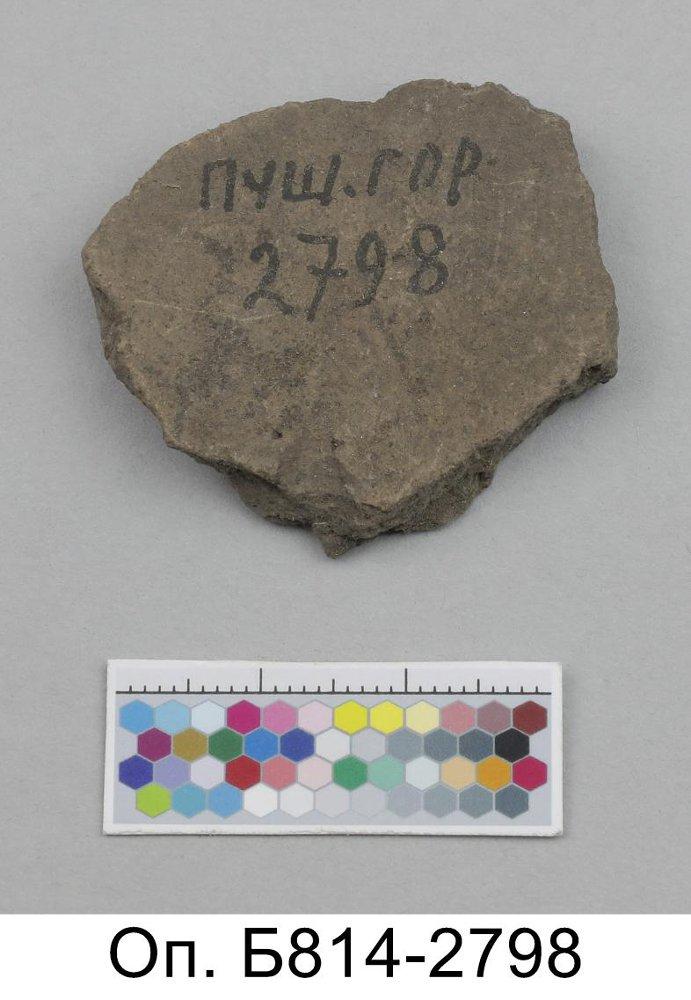 ПУШ.ГОР
2798
Оп. Б814-2798